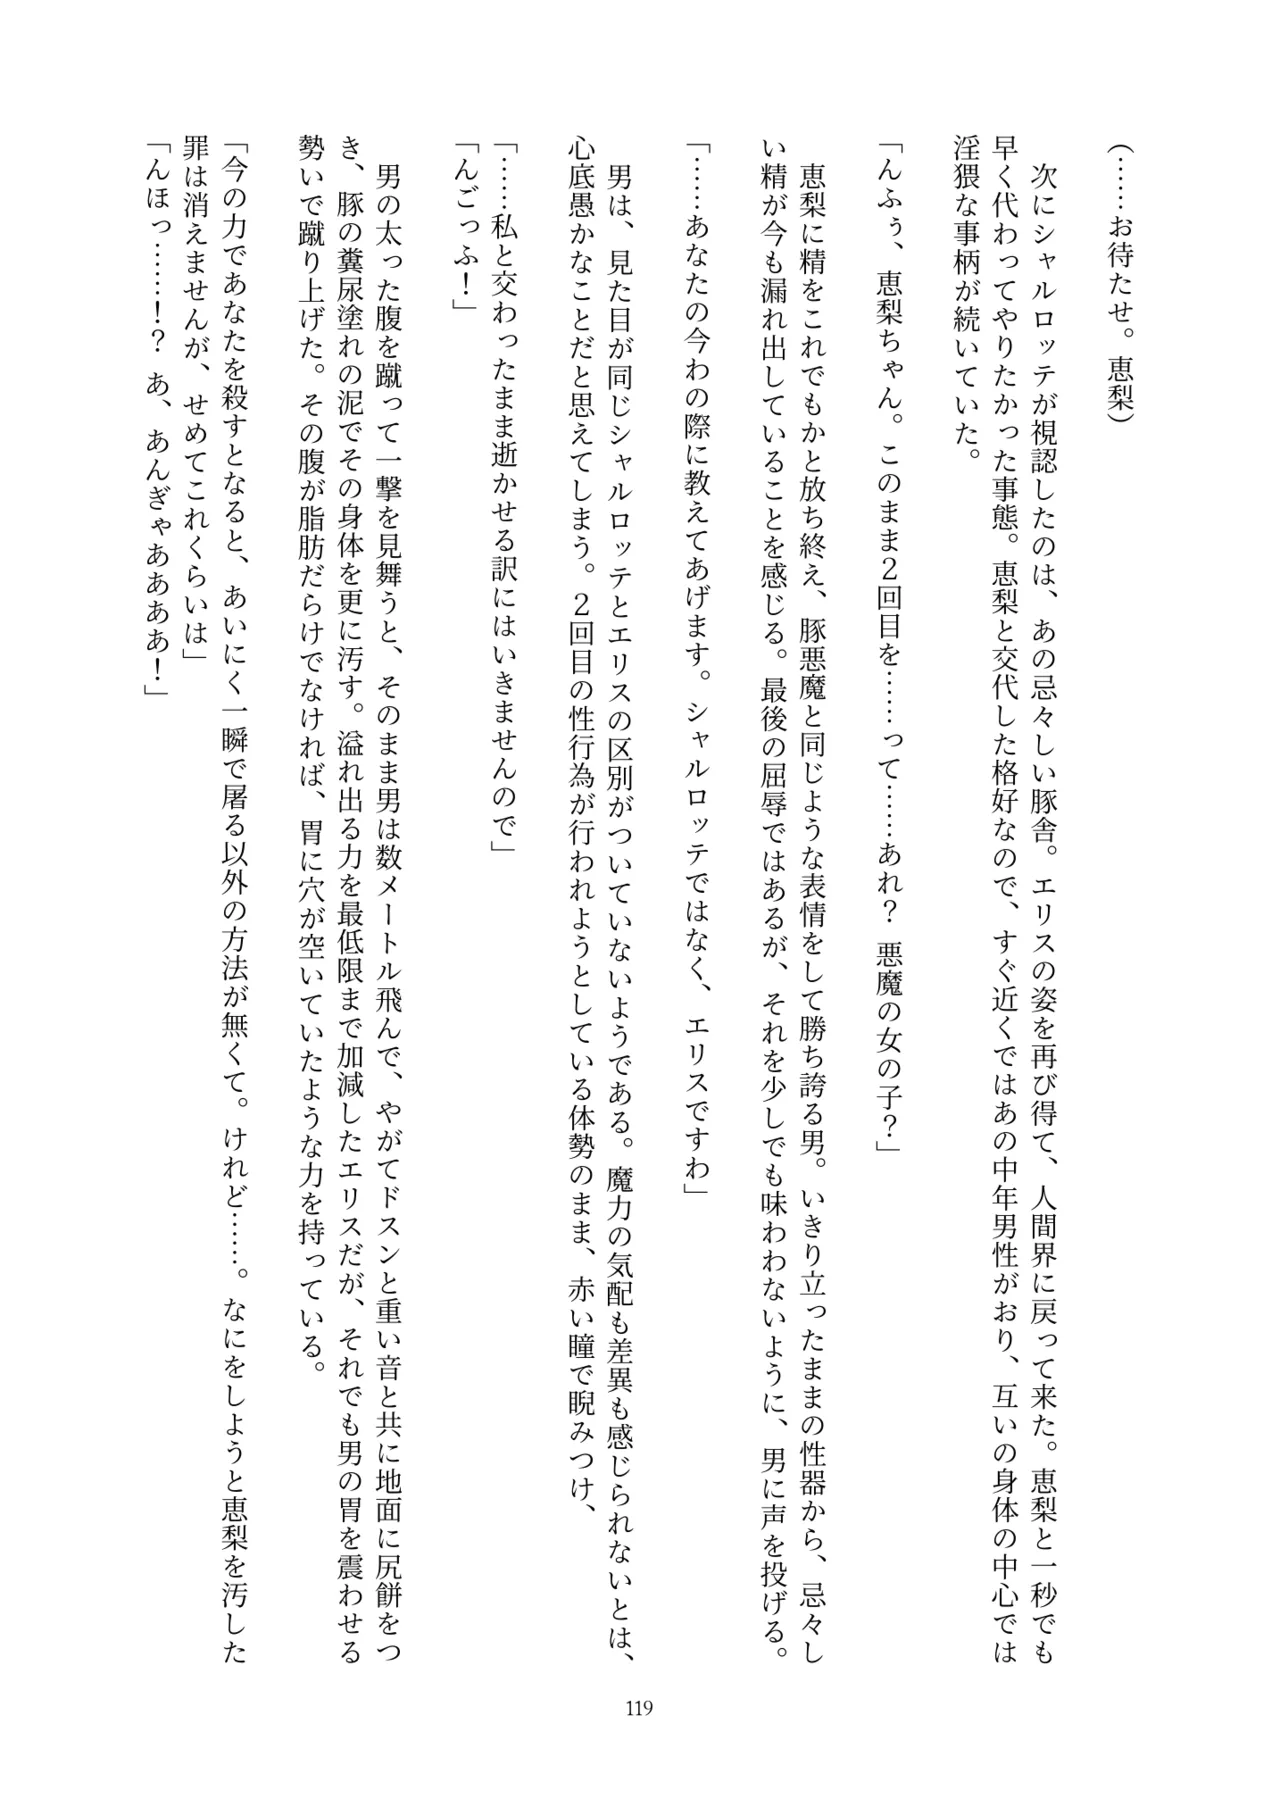 （……お待たせ。恵梨）
次にシャルロッテが視認したのは、あの忌々しい豚舎。エリスの姿を再び得て、人間界に戻って来た。恵梨と一秒でも
早く代わってやりたかった事態。恵梨と交代した格好なので、すぐ近くではあの中年男性がおり、互いの身体の中心では
淫猥な事柄が続いていた。
「んふぅ、恵梨ちゃん。このまま２回目を……って……あれ？　悪魔の女の子？」
恵梨に精をこれでもかと放ち終え、豚悪魔と同じような表情をして勝ち誇る男。いきり立ったままの性器から、忌々し
い精が今も漏れ出していることを感じる。最後の屈辱ではあるが、それを少しでも味わわないように、男に声を投げる。
「……あなたの今わの際に教えてあげます。シャルロッテではなく、エリスですわ」
男は、見た目が同じシャルロッテとエリスの区別がついていないようである。魔力の気配も差異も感じられないとは、
心底愚かなことだと思えてしまう。２回目の性行為が行われようとしている体勢のまま、赤い瞳で睨みつけ、
「……私と交わったまま逝かせる訳にはいきませんので」
「んごっふ！」
男の太った腹を蹴って一撃を見舞うと、そのまま男は数メートル飛んで、やがてドスンと重い音と共に地面に尻餅をつ
き、豚の糞尿塗れの泥でその身体を更に汚す。溢れ出る力を最低限まで加減したエリスだが、それでも男の胃を震わせる
勢いで蹴り上げた。その腹が脂肪だらけでなければ、胃に穴が空いていたような力を持っている。
「今の力であなたを殺すとなると、あいにく一瞬で屠る以外の方法が無くて。けれど……。なにをしようと恵梨を汚した
罪は消えませんが、せめてこれくらいは」
「んほっ……！？　あ、あんぎゃああああ！」
119